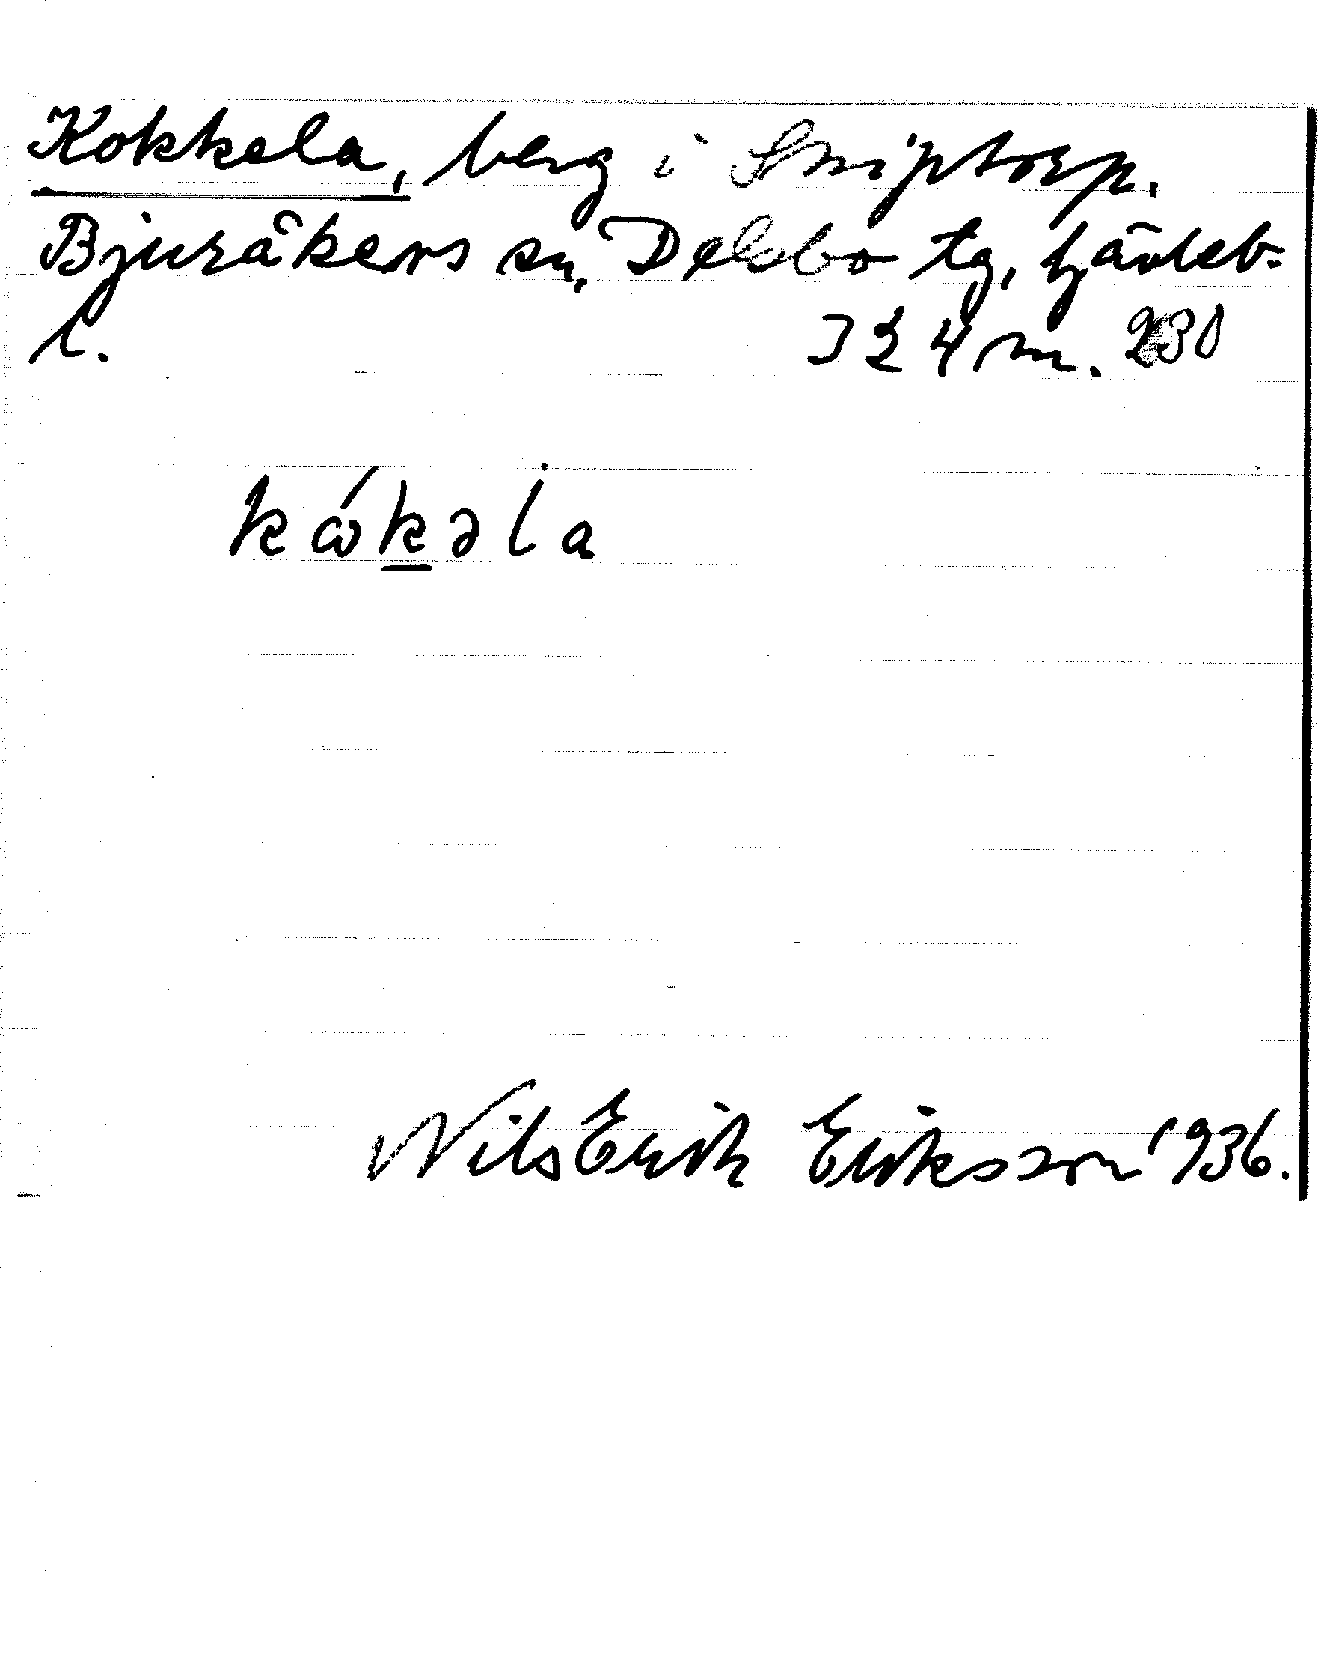 Kokkela, berg i Sniptorp.
Bjuråkers sn, Delsbo tg, Gävleb.
l. 324 m. 230
kɷ́k̲əla
Nils Erik Eriksson 1936.